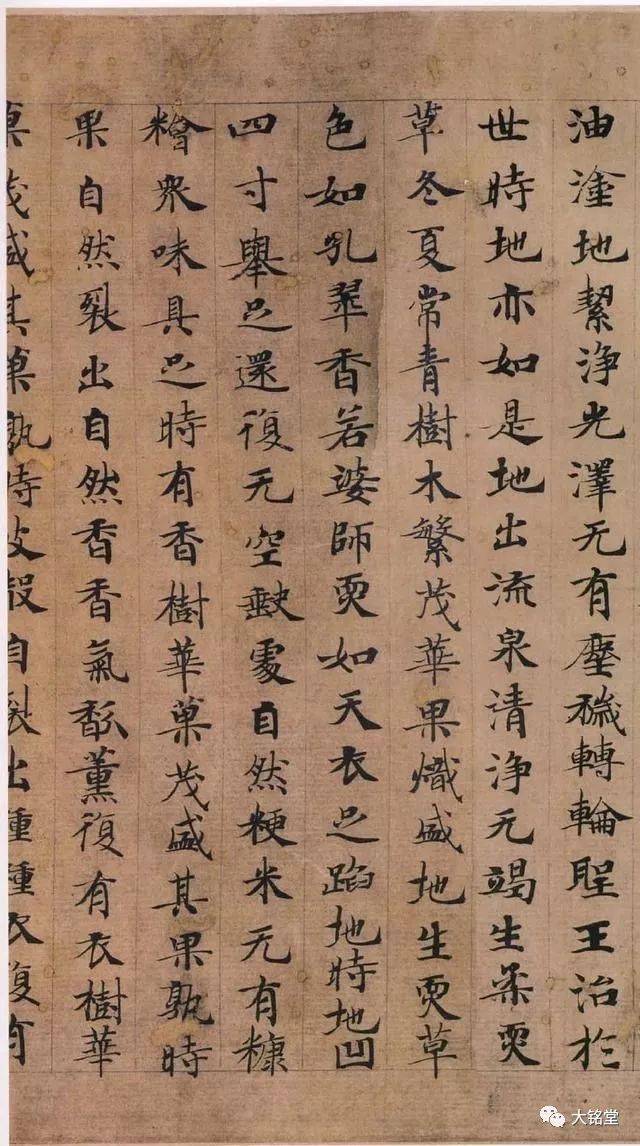 油塗地絜浄光澤无有塵穢轉輪聖王治於
世時地亦如是地出流泉清浄无竭生柔耎
草冬夏常青樹木繁茂華果熾盛地生耎草
色如孔翠香若婆師耎如天衣足蹈地時地凹
四寸舉足還復无空缺處自然粳米无有糠
糩衆味具足時有香樹華菓茂盛其果孰時
果自然裂出自然香香氣馥薰復有衣樹華
菓茂盛其菓孰時皮殼自裂出種種衣復有
大铭堂